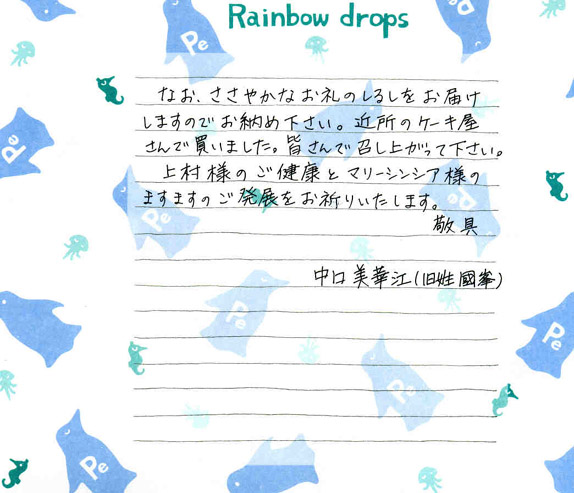 Rainbow drops
なお、ささやかなお礼のしるしをお届け
しますのでお納め下さい。近所のケーキ屋
さんで買いました。皆さんで召し上がって下さい。
上村様のご健康とマリーシンシア様の
ますますのご発展をお祈りいたします。
敬具
中口美華江(旧姓國峯)
Pe
Pe
Pe
Pe
Pe
Pe
Pe
Pe